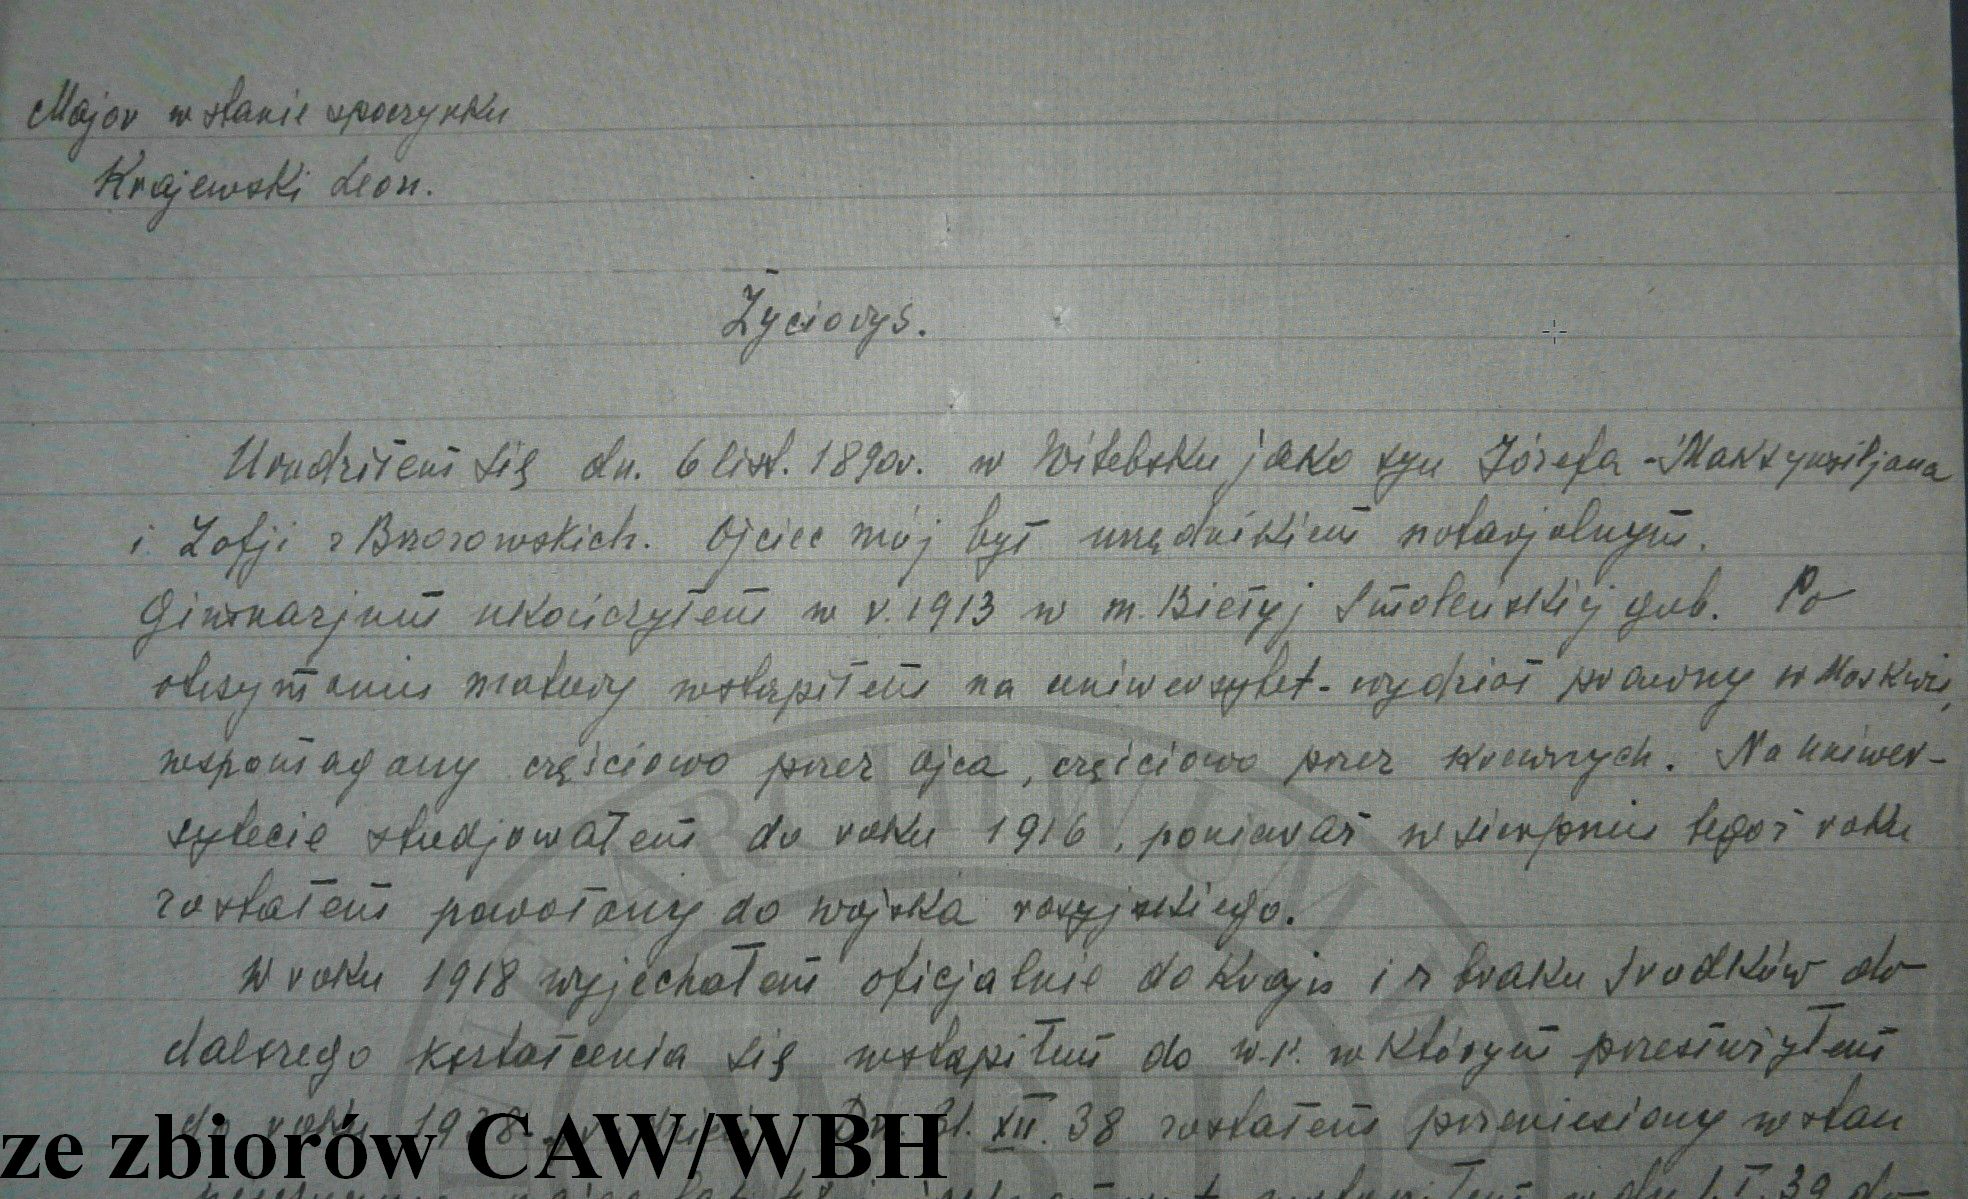 Major w stanie spoczynku
Krajewski Leon.
Życiorys.
Urodziłem się dn. 6 list. 1890r. w Witebsku jako syn Józefa-Maksymiljana
i Zofji z Brzozowskich. Ojciec mój był urzędnikiem notarjalnym.
Gimnazjum ukończyłem w r. 1913 w m. Biełyj Smoleńskiej gub. Po
otrzymaniu matury wstąpiłem na uniwersytet-wydział prawny w Moskwie,
wspomagany częściowo przez ojca, częściowo przez krewnych. Na uniwer-
sytecie studjowałem do roku 1916, ponieważ w sierpniu tegoż roku
zostałem powołany do wojska rosyjskiego.
W roku 1918 wyjechałem oficjalnie do Kraju i z braku środków do
dalszego kształcenia się wstąpiłem do w.p. w którym przesłużyłem
do roku 1938 Dn. 31. XII. 38 zostałem przeniesiony w stan
ze zbiorów CAW/WBH
ARCHIWUM
WBH